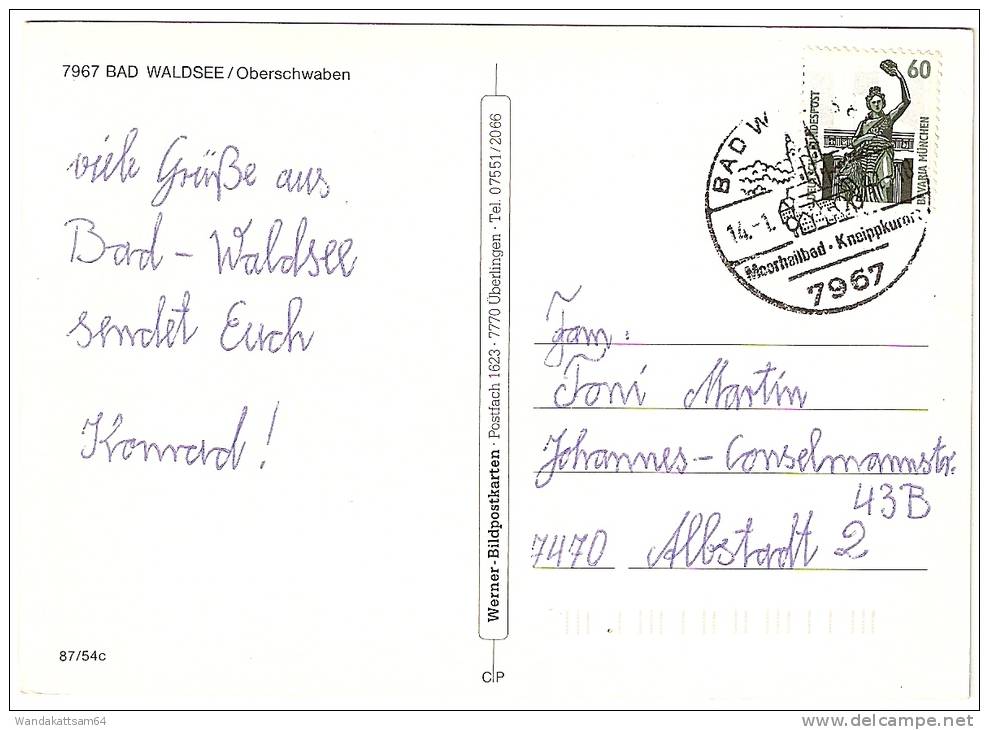 7967 BAD WALDSEE/Oberschwaben
viele Grüße aus
Bad-Waldsee
sendet Euch
Konrad!
87/54c
Werner-Bildpostkarten · Postfach 1623 · 7770 Überlingen · Tel. 07551/2066
C P
60
DEUTSCHE BUNDESPOST
BAVARIA MÜNCHEN
BAD W
14.-1.
Moorheilbad · Kneippkurort
7967
Fam.:
Toni Martin
Johannes-Conselmannstr.
43B
7470 Albstadt 2
Wandakattsam64
www.delcampe.net